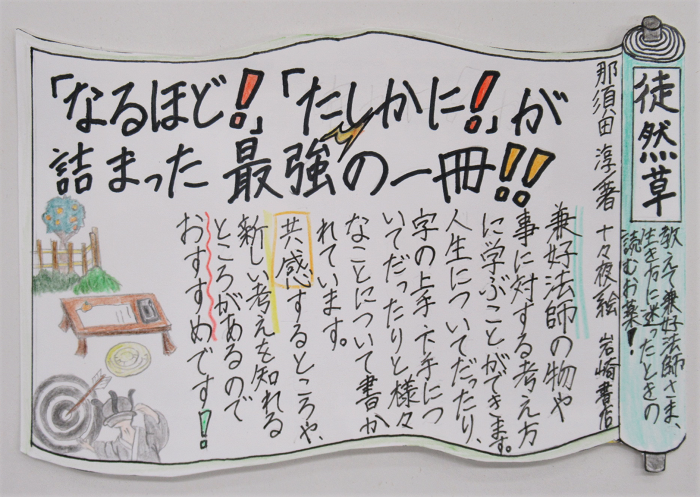 「なるほど！」「たしかに！」が
詰まった最強の一冊！！
徒然草
教えて兼好法師さま、
生き方に迷ったときの
読むお薬！
那須田淳／著 十々夜／絵 岩崎書店
兼好法師の物や
事に対する考え方
に学ぶことができます。
人生についてだったり、
字の上手・下手につ
いてだったりと様々
なことについて書か
れています。
共感するところや、
新しい考えを知れる
ところがあるので
おすすめです！